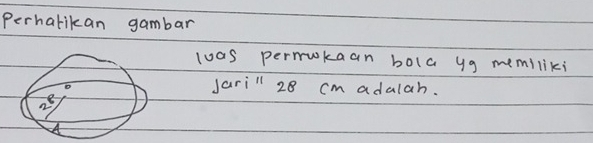 Perhatikan gambar
luas permukaan bola yg memiliki
jari" 28 cm adalah.
28
A